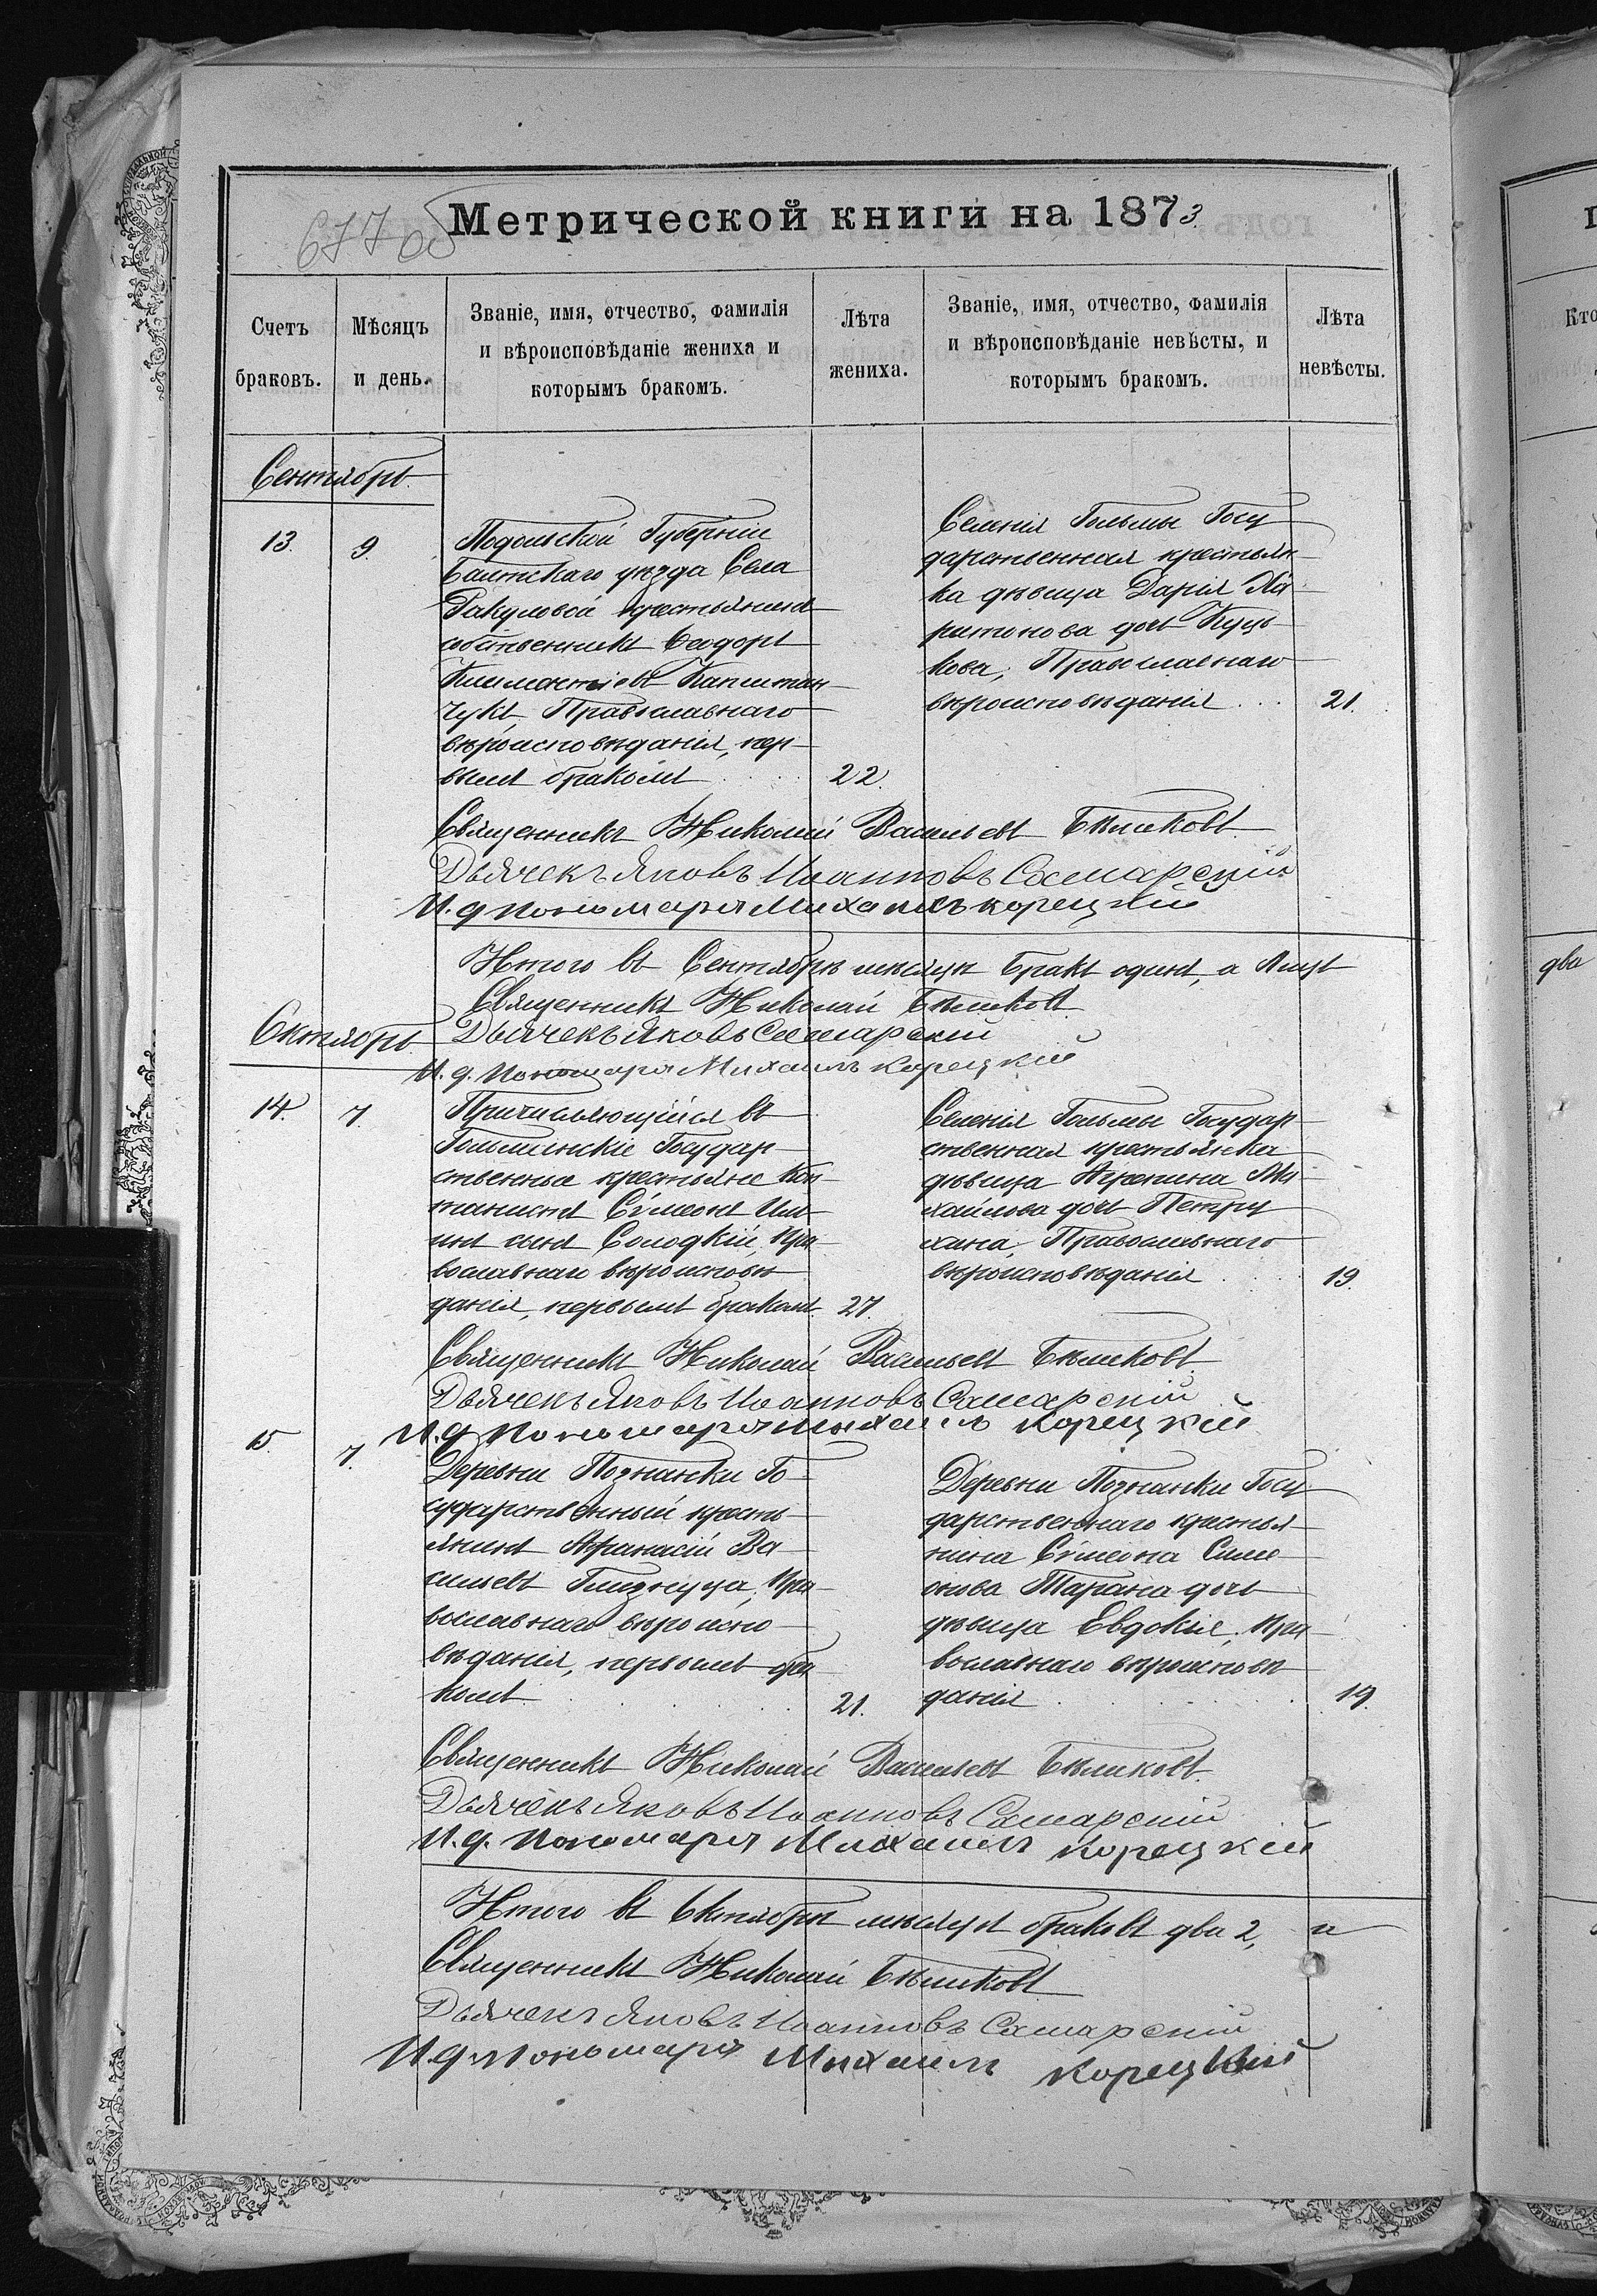 677 об
Метрической книги на 1873.
Счетъ браковъ.
Мѣсяцъ и день.
Званіе, имя, отчество, фамилія
и вѣроисповѣданіе жениха и
которымъ бракомъ.
Лѣта жениха.
Званіе, имя, отчество, фамилія
и вѣроисповѣданіе невѣсты, и
которымъ бракомъ.
Лѣта невѣсты.
Сентябрь.
13. 9.
Подольской Губерніи
Балтскаго уѣзда Села
крестьянинъ
собственникъ Ѳеодоръ
Климентіевъ Капитан-
чукъ, Православнаго
вѣроисповѣданія, пер-
вымъ бракомъ . . . 22.
Селенія Гольмы Госу-
дарственная крестьян-
ка дѣвица Дарія Ха-
ритонова дочь Куць-
кова, Православнаго
вѣроисповѣданія . . . 21.
Священникъ Николай Васильевъ Бѣликовъ
Дьячекъ Яковъ Иоанновъ Самарскій
И. д. пономаря Михаилъ Корецкій
Итого въ Сентябрѣ мѣсяцѣ бракъ одинъ, а лицъ
Священникъ Николай Бѣликовъ
Дьячекъ Яковъ Самарскій
И. д. пономаря Михаилъ Корецкій
Октябрь
14. 7.
Причисляющійся въ
Гольминскіе Государ-
ственные крестьяне
Сѵмеонъ
сынъ Солодкій, Пра-
вославнаго вѣроисповѣ-
данія, первымъ бракомъ. 27.
Селенія Гольмы Государ-
ственная крестьянка
дѣвица Агрипина Ми-
хайлова дочь Петри-
хана, Православнаго
вѣроисповѣданія . . . 19.
Священникъ Николай Васильевъ Бѣликовъ
Дьячекъ Яковъ Иоанновъ Самарскій
И. д. пономаря Михаилъ Корецкій
15. 7.
Деревни Познанки Го-
сударственный кресть-
янинъ Аѳанасій Ва-
сильевъ Глизнуца, Пра-
вославнаго вѣроиспо-
вѣданія, первымъ бра-
комъ . . . 21.
Деревни Познанки Госу-
дарственнаго крестья-
нина Сѵмеона Симе-
онова Тарана дочь
дѣвица Евдокія, Пра-
вославнаго вѣроисповѣ-
данія . . . 19.
Священникъ Николай Васильевъ Бѣликовъ.
Дьячекъ Яковъ Иоанновъ Самарскій
И. д. пономаря Михаилъ Корецкій
Итого въ Октябрѣ мѣсяцѣ браковъ два 2, а
Священникъ Николай Бѣликовъ
Дьячекъ Яковъ Иоанновъ Самарскій
И. д. пономаря Михаилъ Корецкій
Кто
два